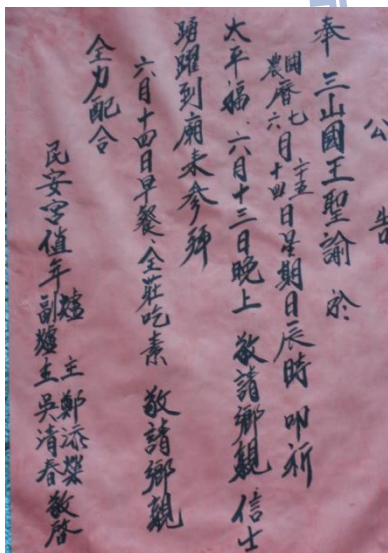 公告
奉三山國王聖諭於
國曆七月廿五日星期日辰時叩祈
農曆六月十四日
太平福、六月十三日晚上敬請鄉親信士
踴躍到廟來參拜
六月十四日早餐、全莊吃素敬請鄉親
全力配合
民安宮值年爐主鄭添榮
副爐主吳清春敬啓